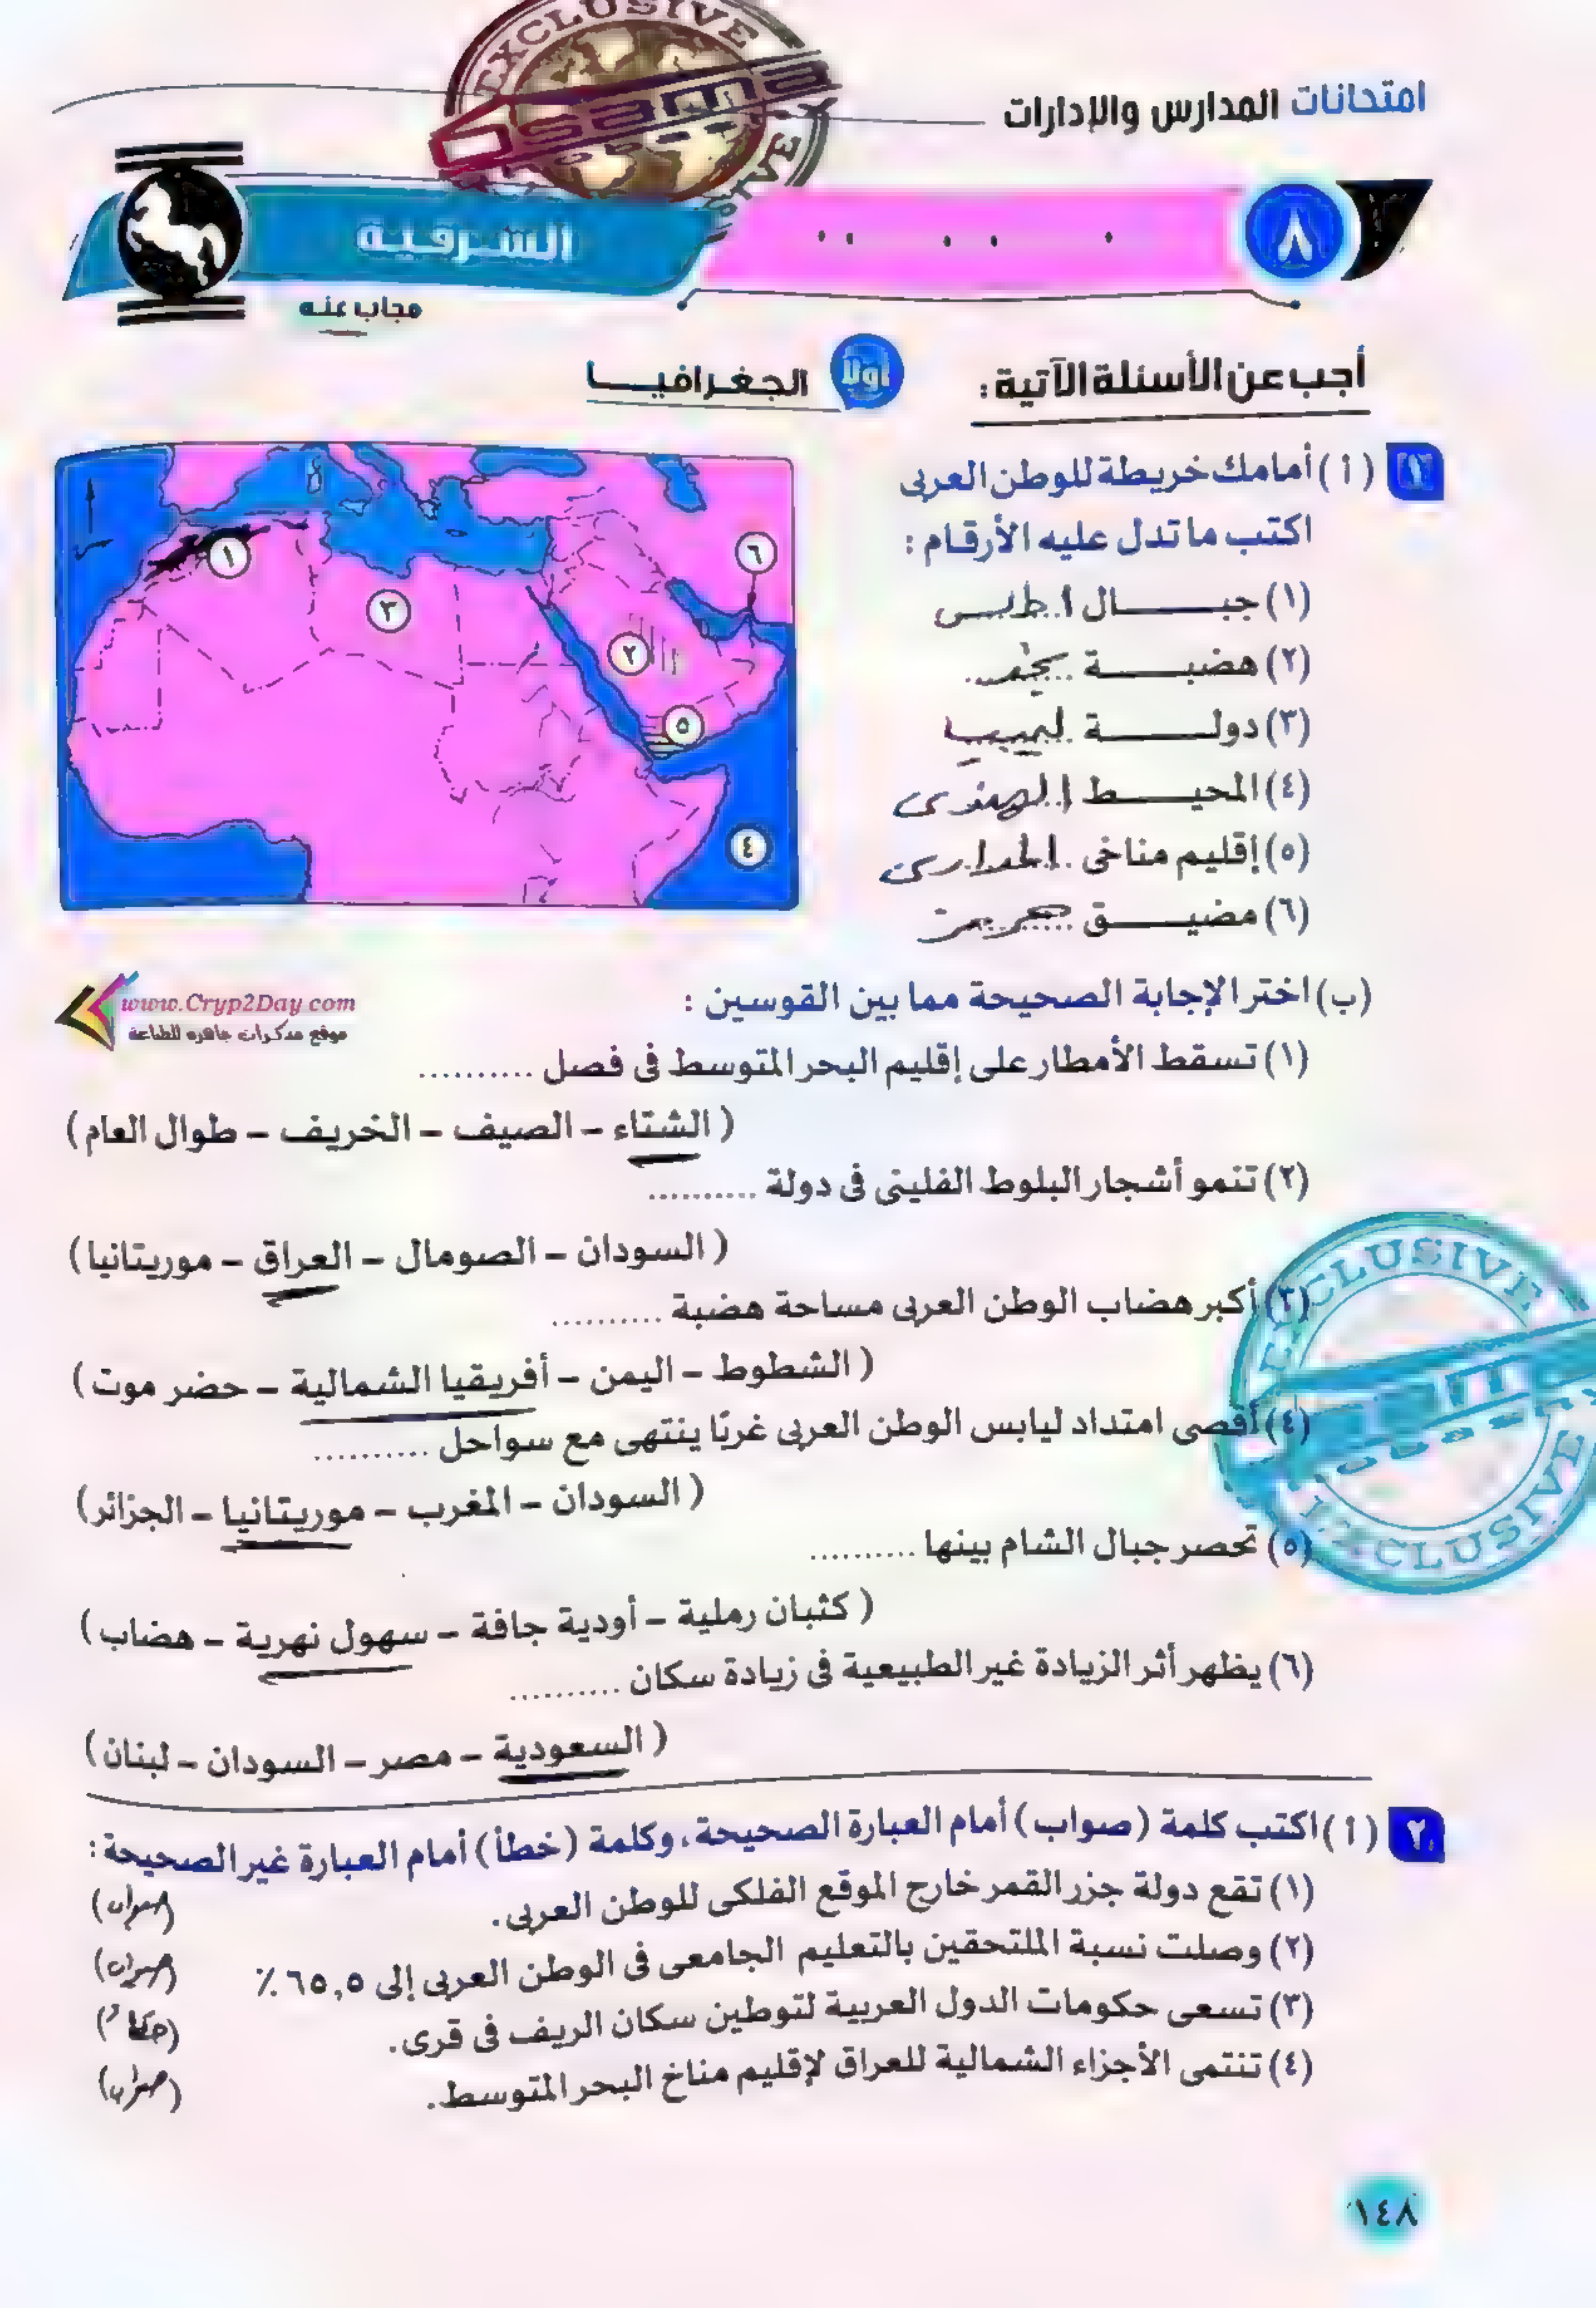 امتحانات المدارس والإدارات
EXCLUSIVE
٨
الشرقية
مجاب عنه
أجب عن الأسئلة الآتية :
أولا الجغرافيا
١ (أ) أمامك خريطة للوطن العربى
اكتب ما تدل عليه الأرقام :
(١) جبال أطلس
(٢) هضبة نجد
(٣) دولة ليبيا
(٤) المحيط الهندى
(٥) إقليم مناخى المدارى
(٦) مضيق هرمز
١
٢
٣
٤
٥
٦
www.Cryp2Day.com
موقع مذكرات جاهزة للطباعة
(ب) اختر الإجابة الصحيحة مما بين القوسين :
(١) تسقط الأمطار على إقليم البحر المتوسط فى فصل ..........
(الشتاء – الصيف – الخريف – طوال العام)
(٢) تنمو أشجار البلوط الفلينى فى دولة ..........
(السودان – الصومال – العراق – موريتانيا)
(٣) أكبر هضاب الوطن العربى مساحة هضبة ..........
(الشطوط – اليمن – أفريقيا الشمالية – حضر موت)
(٤) أقصى امتداد ليابس الوطن العربى غربًا ينتهى مع سواحل ..........
(السودان – المغرب – موريتانيا – الجزائر)
(٥) تحصر جبال الشام بينها ..........
(كثبان رملية – أودية جافة – سهول نهرية – هضاب)
(٦) يظهر أثر الزيادة غير الطبيعية فى زيادة سكان ..........
(السعودية – مصر – السودان – لبنان)
EXCLUSIVE
EXCLUSIVE
٢ (أ) اكتب كلمة (صواب) أمام العبارة الصحيحة، وكلمة (خطأ) أمام العبارة غير الصحيحة :
(١) تقع دولة جزر القمر خارج الموقع الفلكى للوطن العربى. (صواب)
(٢) وصلت نسبة الملتحقين بالتعليم الجامعى فى الوطن العربى إلى ٦٥,٥ ٪ (صواب)
(٣) تسعى حكومات الدول العربية لتوطين سكان الريف فى قرى. (خطأ)
(٤) تنتمى الأجزاء الشمالية للعراق لإقليم مناخ البحر المتوسط. (صواب)
١٤٨